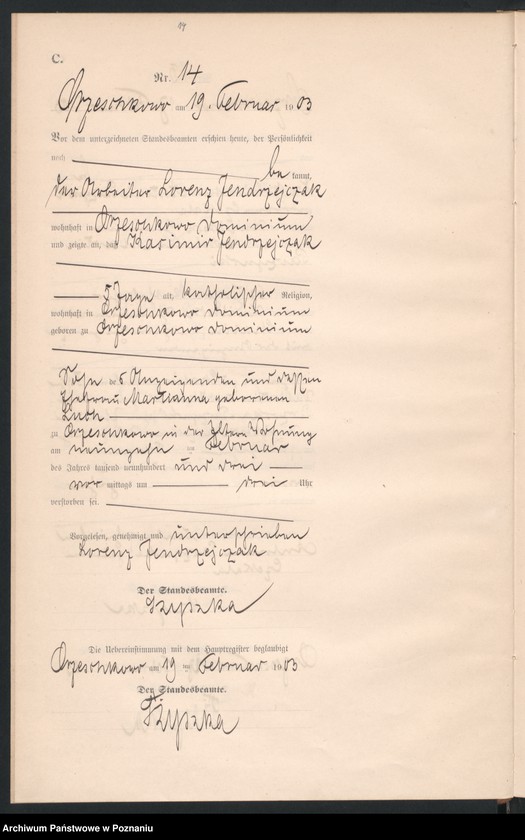 14
C.
Nr. 14
Orzeschkowo am 19. Februar 1903
Vor dem unterzeichneten Standesbeamten erschien heute, der Persönlichkeit
nach
be kannt,
der Arbeiter Lorenz Jendrzejczak
wohnhaft in Orzeschkowo Dominium
und zeigte an, daß Kasimir Jendrzejczak
5 Tage alt, katholischer Religion,
wohnhaft in Orzeschkowo Dominium
geboren zu Orzeschkowo Dominium
Sohn des Anzeigenden und dessen
Ehefrau Marianna geborenen
zu Orzeschkowo in der Wohnung
am neunzehn ten Februar
des Jahres tausend neunhundert und drei
vor mittags um drei Uhr
verstorben sei.
Vorgelesen, genehmigt und unterschrieben
Lorenz Jendrzejczak
Der Standesbeamte.
Die Uebereinstimmung mit dem Hauptregister beglaubigt
Orzeschkowo am 19 ten Februar 1903
Der Standesbeamte.
Archiwum Państwowe w Poznaniu